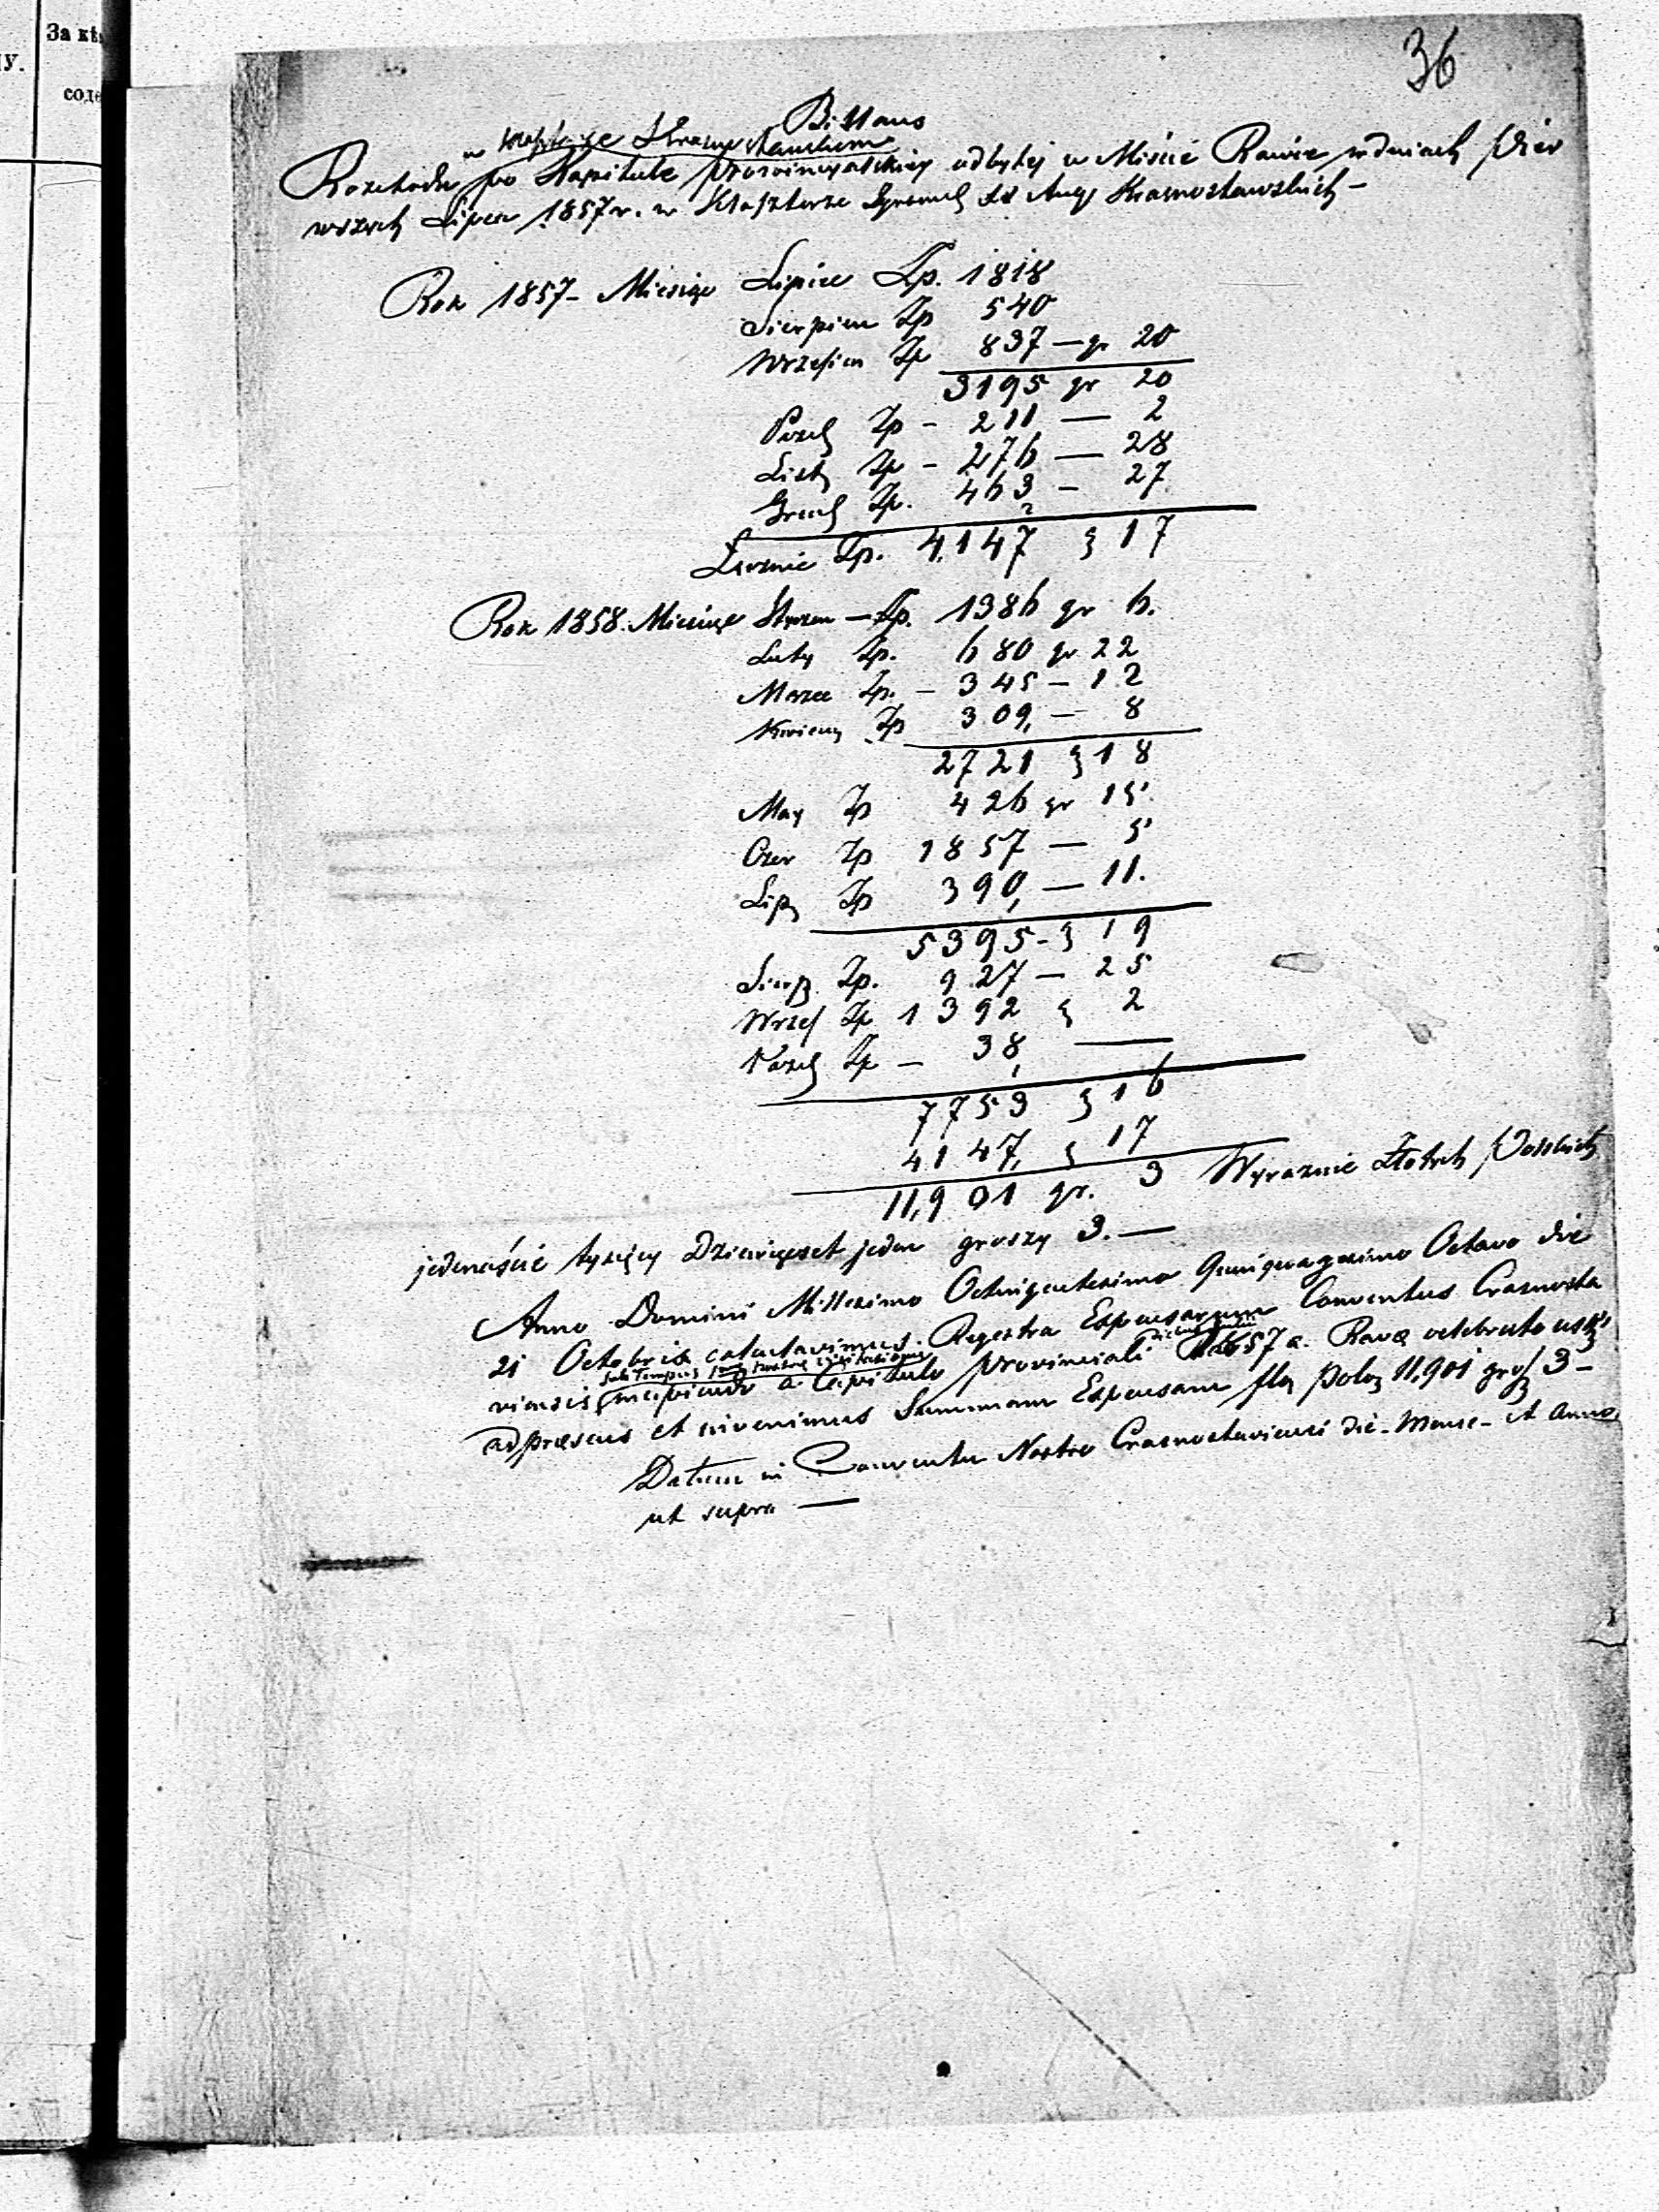 За кѣ
У.
соде
36
Bilans
w Klasztorze
Rozchodu po Kapitule Prowincyalskiey odbytej w Mieście Rawie w dniach Pier
wszych Lipca 1857 r. w Klasztorze XX Aug Krasnostawskich –
Rok 1857 – Miesiąc Lipiec Zp. 1818
Sierpien Zp 540
Wrzesien Zp 837 — gr 20
3195 gr 20
Pazd Zp – 211 — 2
List Zp – 276 — 28
Grud Zp. 463 – 27
Łącznie Zp. 4,147 g 17
Rok 1858. Miesiąc Styczen — Zp. 1386 gr 6.
Luty Zp. 680 gr 22
Marzec Zp. – 345 – 12
Kwiecη Zp 309, — 8
2721 g 18
May Zp 426 gr 15.
Czer Zp 1857 — 5
Lip Zp 390, — 11.
5395 - g 19
Sierp. Zp. 927 — 25
Wrześ Zp 1392 g 2
Pazd Zp — 38, —
7753 g 16
4147, g 17
11,901 gr. 3 Wyraznie Złotych Polskich
jedenaście tysięcy Dziewięset jeden groszy 3. —
Anno Domini Millesimo Octingentesimo Quinquagesimo Octavo die
21 Octobris calculavimus Regestra Expensarum Conventus Crasnosta
viensis incipiendo a Capitulo Provinciali 1857 a. Ravæ celebrato usq
ad præsens et invenimus Summam Expensam flo Polo 11,901 gros 3 –
Datum in Conventu Nostro Crasnostaviensi die – mense – et anno
ut supra —